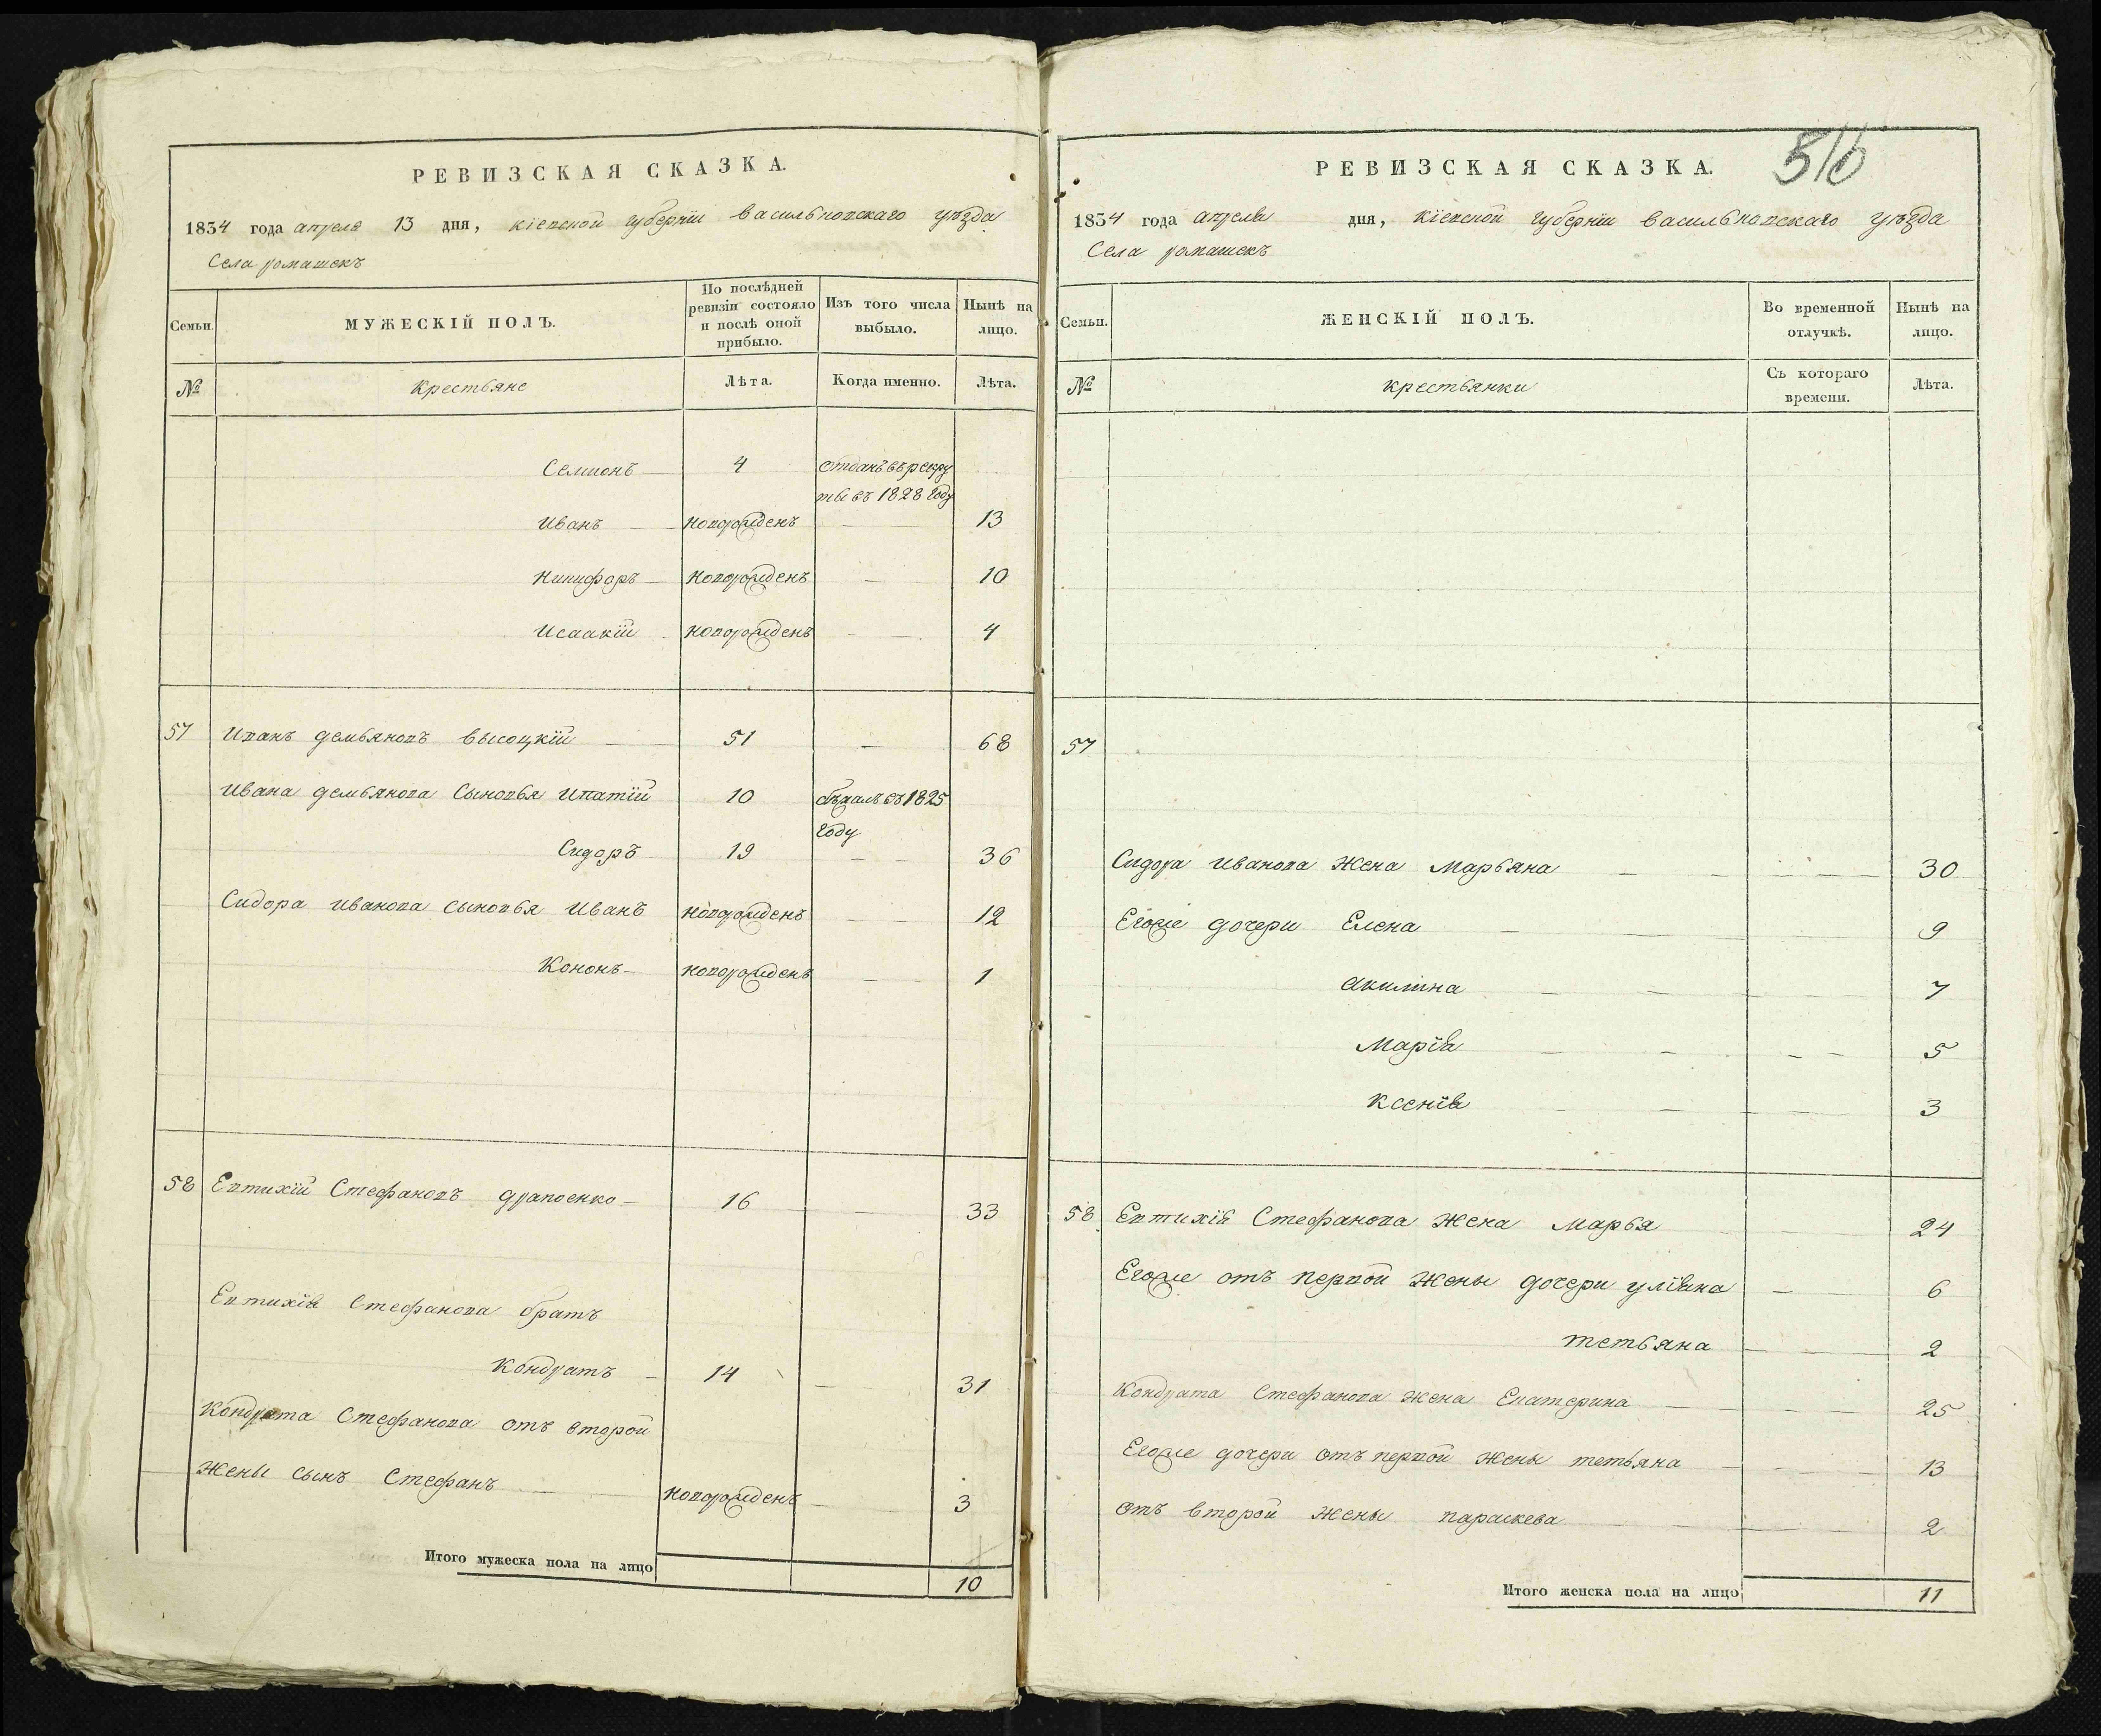 РЕВИЗСКАЯ СКАЗКА.
1834 года апреля 13 дня, кіевской губерніи васильковскаго уѣзда
Села ромашекъ
Семьи.
МУЖЕСКІЙ ПОЛЪ.
По послѣдней ревизіи состояло и послѣ оной прибыло.
Изъ того числа выбыло.
Нынѣ на лицо.
№ крестьяне Лѣта. Когда именно. Лѣта.
Семионъ 4 отданъ въ рекру
ты въ 1828 году
Иванъ новорожденъ 13
Никифоръ новорожденъ 10
Исаакій новорожденъ 4
57 Иванъ демьяновъ высоцкій 51 68
Ивана демьянова сыновья Ипатій 10 бѣжалъ въ 1825
году
Сидоръ 19 36
Сидора иванова сыновья Иванъ новорожденъ 12
Кононъ новорожденъ 1
58 Евтихій Стефановъ драпоенко 16 33
Евтихія Стефанова братъ
Кондратъ 14 31
Кондрата Стефанова отъ второй
жены сынъ Стефанъ новорожденъ 3
Итого мужеска пола на лицо 10
516
РЕВИЗСКАЯ СКАЗКА.
1834 года апреля дня, кіевской губерніи васильковскаго уѣзда
Села ромашекъ
Семьи.
ЖЕНСКІЙ ПОЛЪ.
Во временной отлучкѣ.
Нынѣ на лицо.
№ крестьянки Съ котораго времени. Лѣта.
57
Сидора иванова жена Марьяна 30
Егоже дочери Елена 9
акилина 7
Марія 5
Ксенія 3
58 Евтихія Стефанова жена марья 24
Егоже отъ первой жены дочери уліяна 6
тетьяна 2
Кондрата Стефанова жена Екатерина 25
Егоже дочери отъ первой жены тетьяна 13
отъ второй жены параскева 2
Итого женска пола на лицо 11